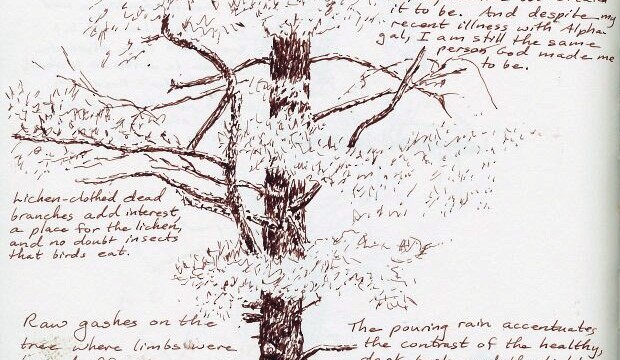 it to be. And despite my
recent illness with Alpha-
gal, I am still the same
person God made me
to be.
Lichen-clothed dead
branches add interest,
a place for the lichen,
and no doubt insects
that birds eat.
Raw gashes on the
tree where limbs were
The pouring rain accentuates
the contrast of the healthy,